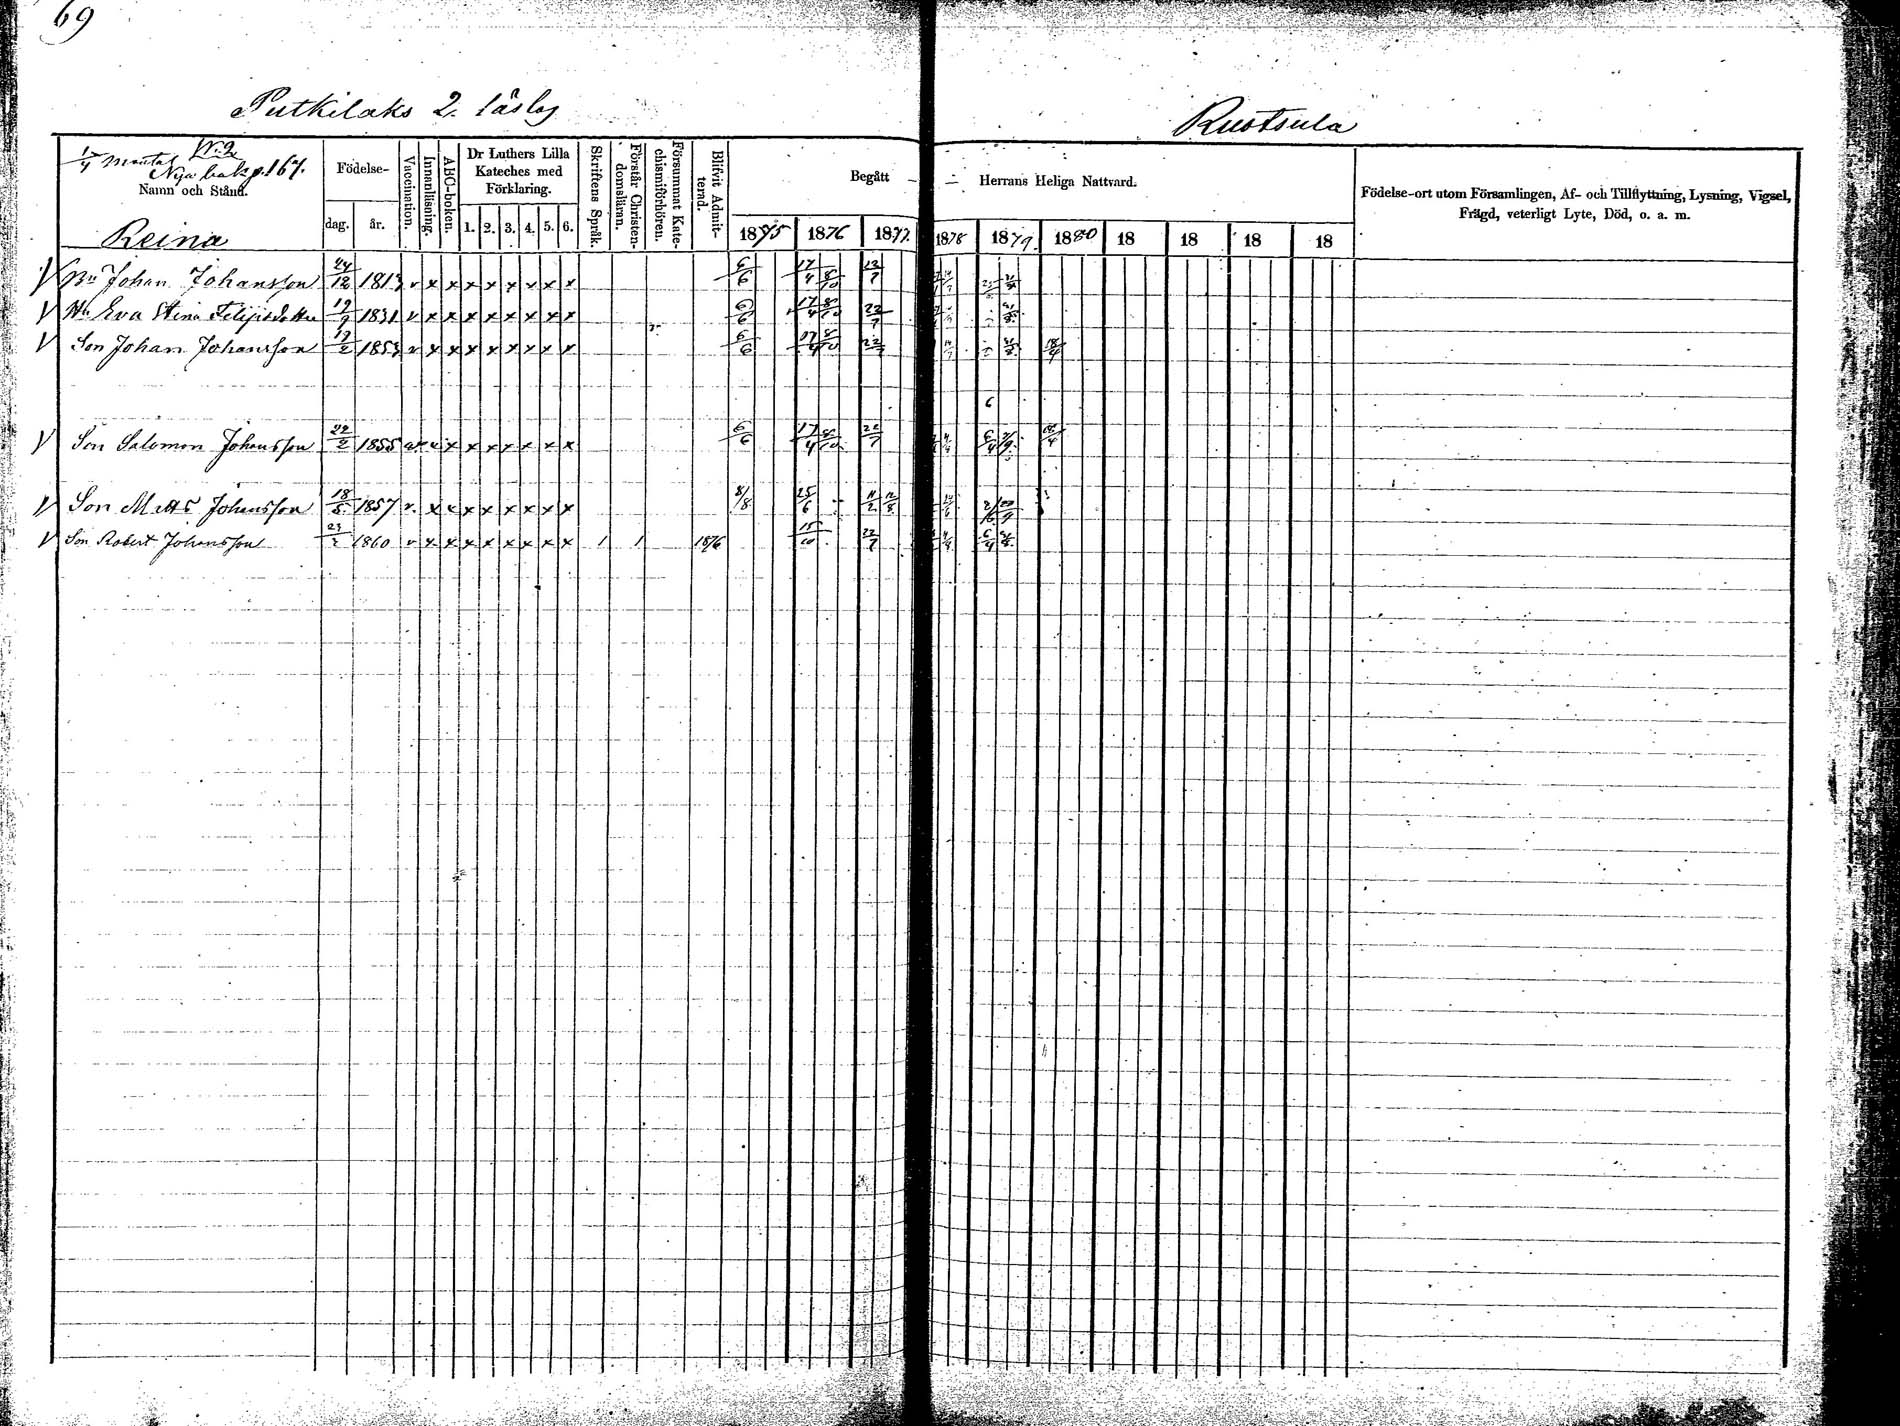 69
Putkilaks 2. läslag
Rustsula
1/4 mantal N:o 2
Nya bok p. 167.
Namn och Stånd.
Reina
Födelse-
dag. år.
Vaccination.
Innanläsning.
ABC-boken.
Dr Luthers Lilla
Kateches med
Förklaring.
1. 2. 3. 4. 5. 6.
Skriftens Språk.
Förstår Christen-
domsläran.
Försummat Kate-
chismiförhören.
Blifvit Admit-
terad.
Begått — — Herrans Heliga Nattvard.
1875 1876 1877. 1878 1879. 1880 18 18 18 18
Födelse-ort utom Församlingen, Af- och Tillflyttning, Lysning, Vigsel,
Frägd, veterligt Lyte, Död, o. a. m.
V Bn Johan Johansson 24/12 1813 v x x x x x x x x 6/6 17/4 8/10 12/7
V Hu Eva Stina Filipsdotter 19/9 1831 v x x x x x x x x 6/6 17/4 8/10 22/7
V Son Johan Johansson 17/2 1853 v x x x x x x x x 6/6 17/4 8/10 22/7 18/4
6
V Son Salomon Johansson 22/2 1855 v x x x x x x x x 6/6 17/4 8/10 22/7 18/4
V Son Matts Johansson 18/5 1857 v. x x x x x x x x 8/8 25/6 11/2 12/8
V Son Robert Johansson 23/2 1860 v x x x x x x x x 1 1 1876 15/10 22/7